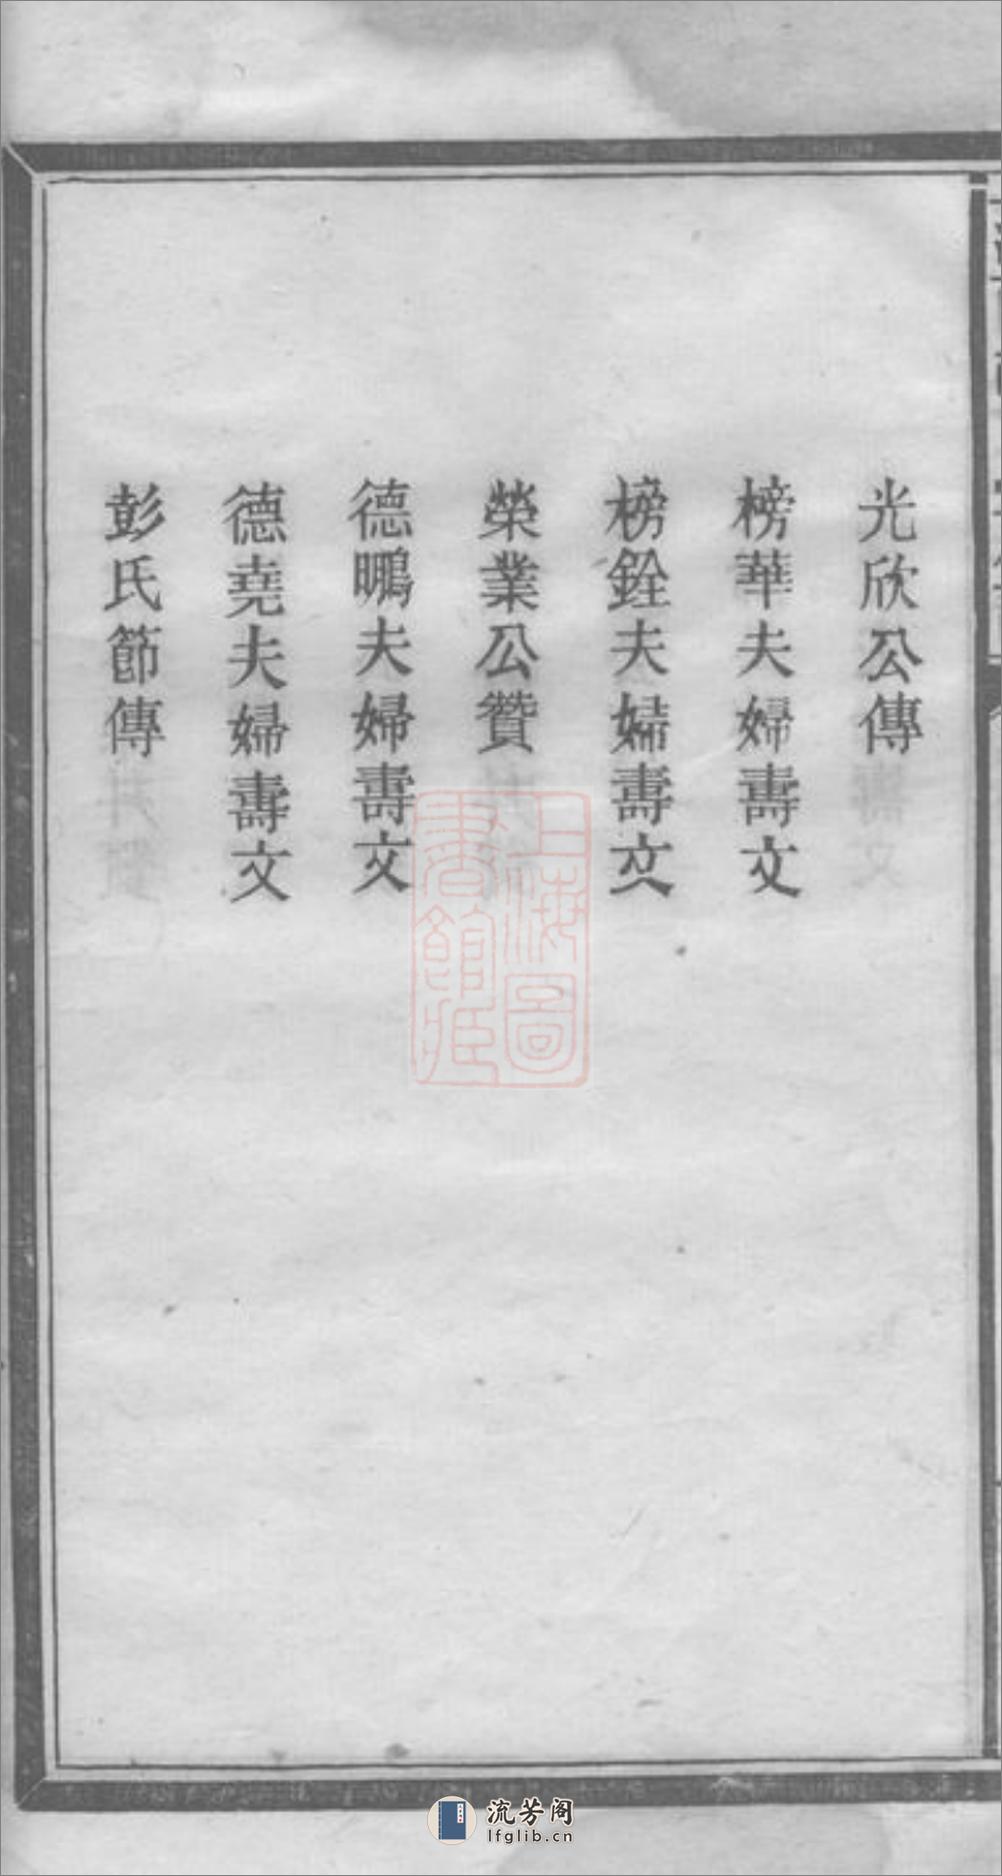 光欣公傳
榜華夫婦壽文
榜銓夫婦壽文
榮業公贊
德鵬夫婦壽文
德堯夫婦壽文
彭氏節傳
上海圖
書館藏
流芳阁
lfglib.cn